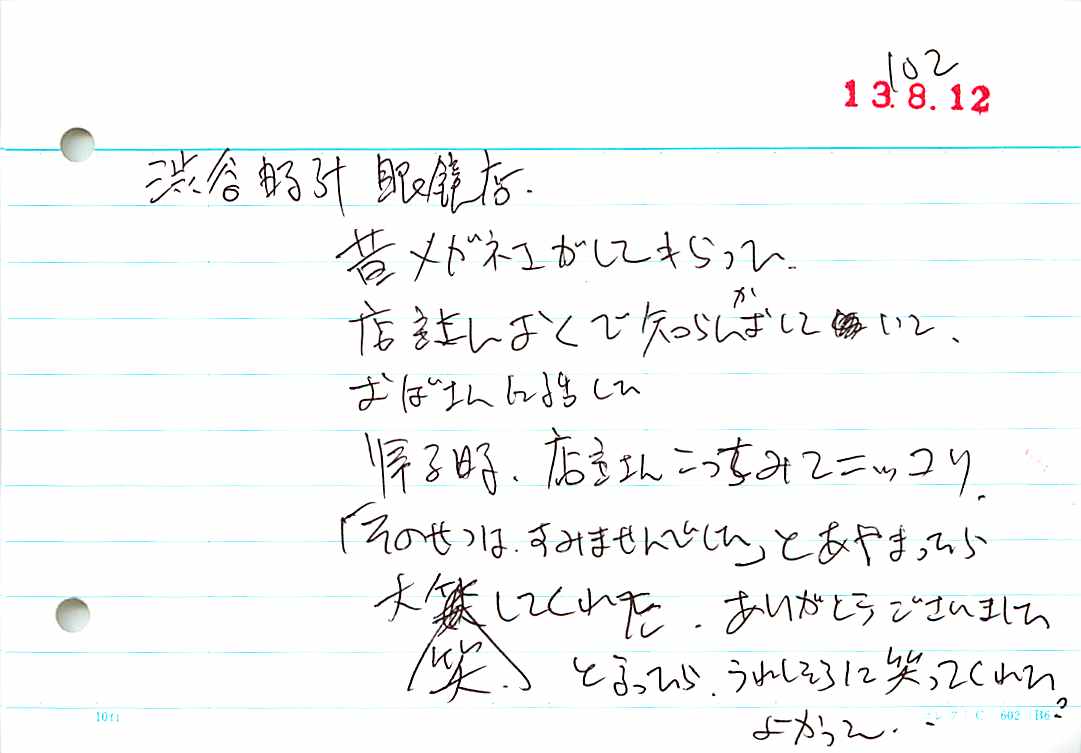 102
13.8.12
渋谷時計 眼鏡店.
昔メガネエがしてもらった.
店主さんはくで知らんかおして いて、
おばさんに話した
帰る時、店主さんこっちみてニッコリ.
「そのせつは、すみませんでした」とあやまったら
大笑してくれた. ありがとうございました
笑.
と言ったら、うれしそうに笑ってくれた.
よかった..